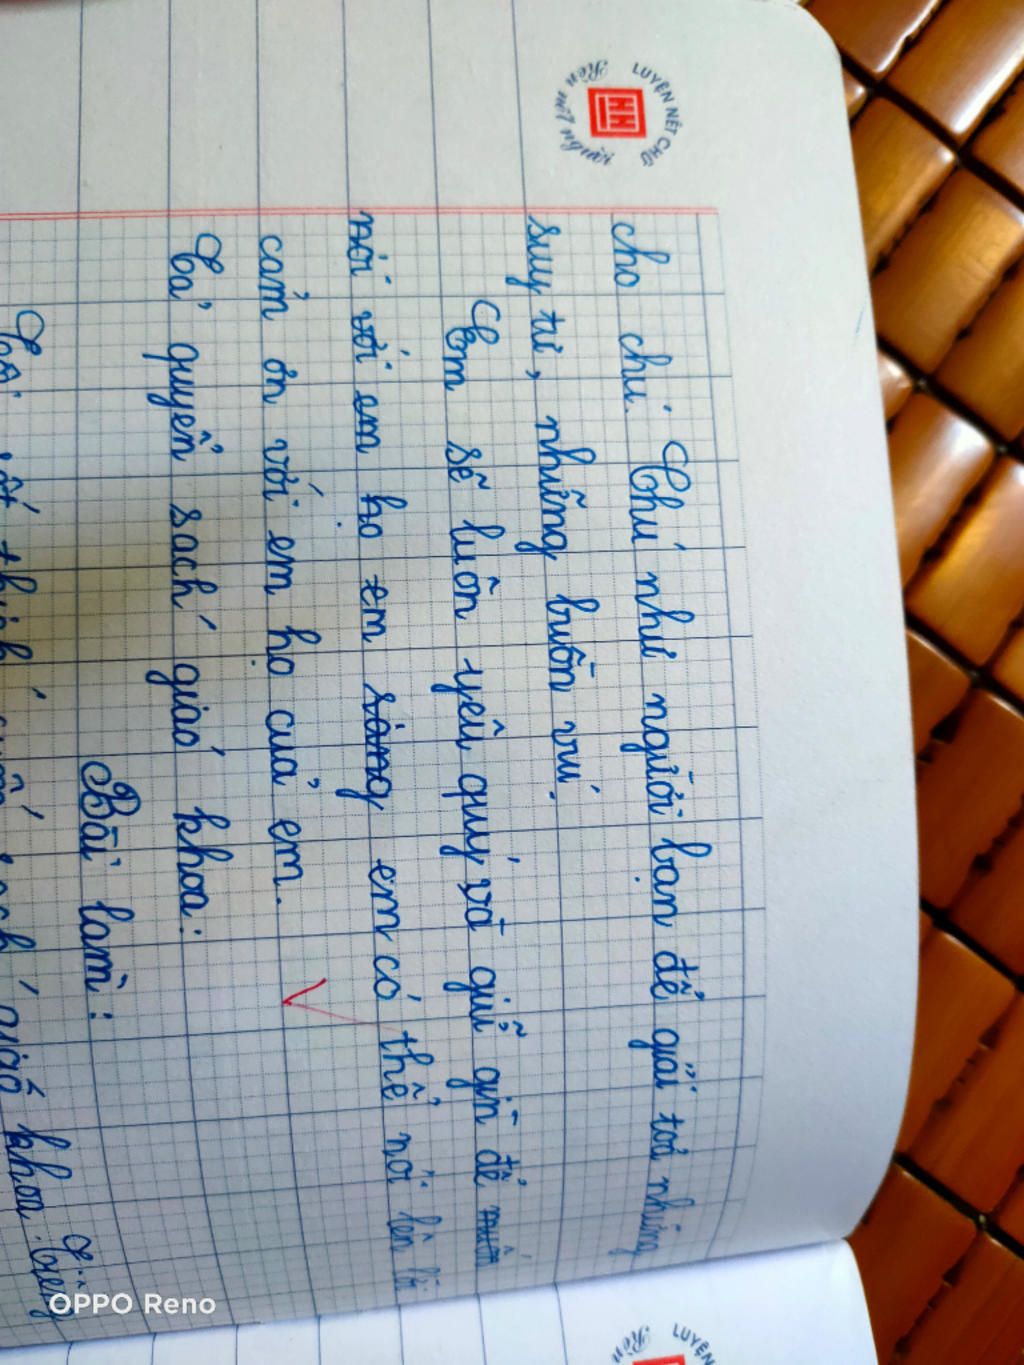 LUYỆN NÉT CHỮ
Rèn nết người
HH
cho chú. Chú như người bạn để giải toả những
suy tư, những buồn vui.
Em sẽ luôn yêu quý và giữ gìn để
nói với em họ em sàng em có thể nói lên lời
cảm ơn với em họ của em.
Tả quyển sách giáo khoa:
Bài làm:
sách giáo khoa. Tiếng
LUYỆN
Rèn
OPPO Reno